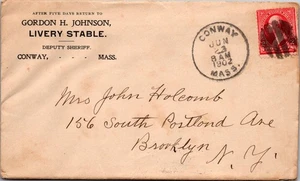 AFTER FIVE DAYS RETURN TO
GORDON H. JOHNSON,
LIVERY STABLE.
DEPUTY SHERIFF.
CONWAY, - - - - MASS.
CONWAY
JUN
3
8 AM
1902
MASS.
Mrs John Holcomb
156 South Portland Ave
Brooklyn
N. Y.